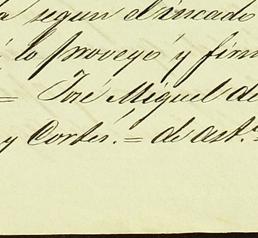 segun el incado
lo proveyó y firm
= José Miguel de
y Cortés. = de ast.